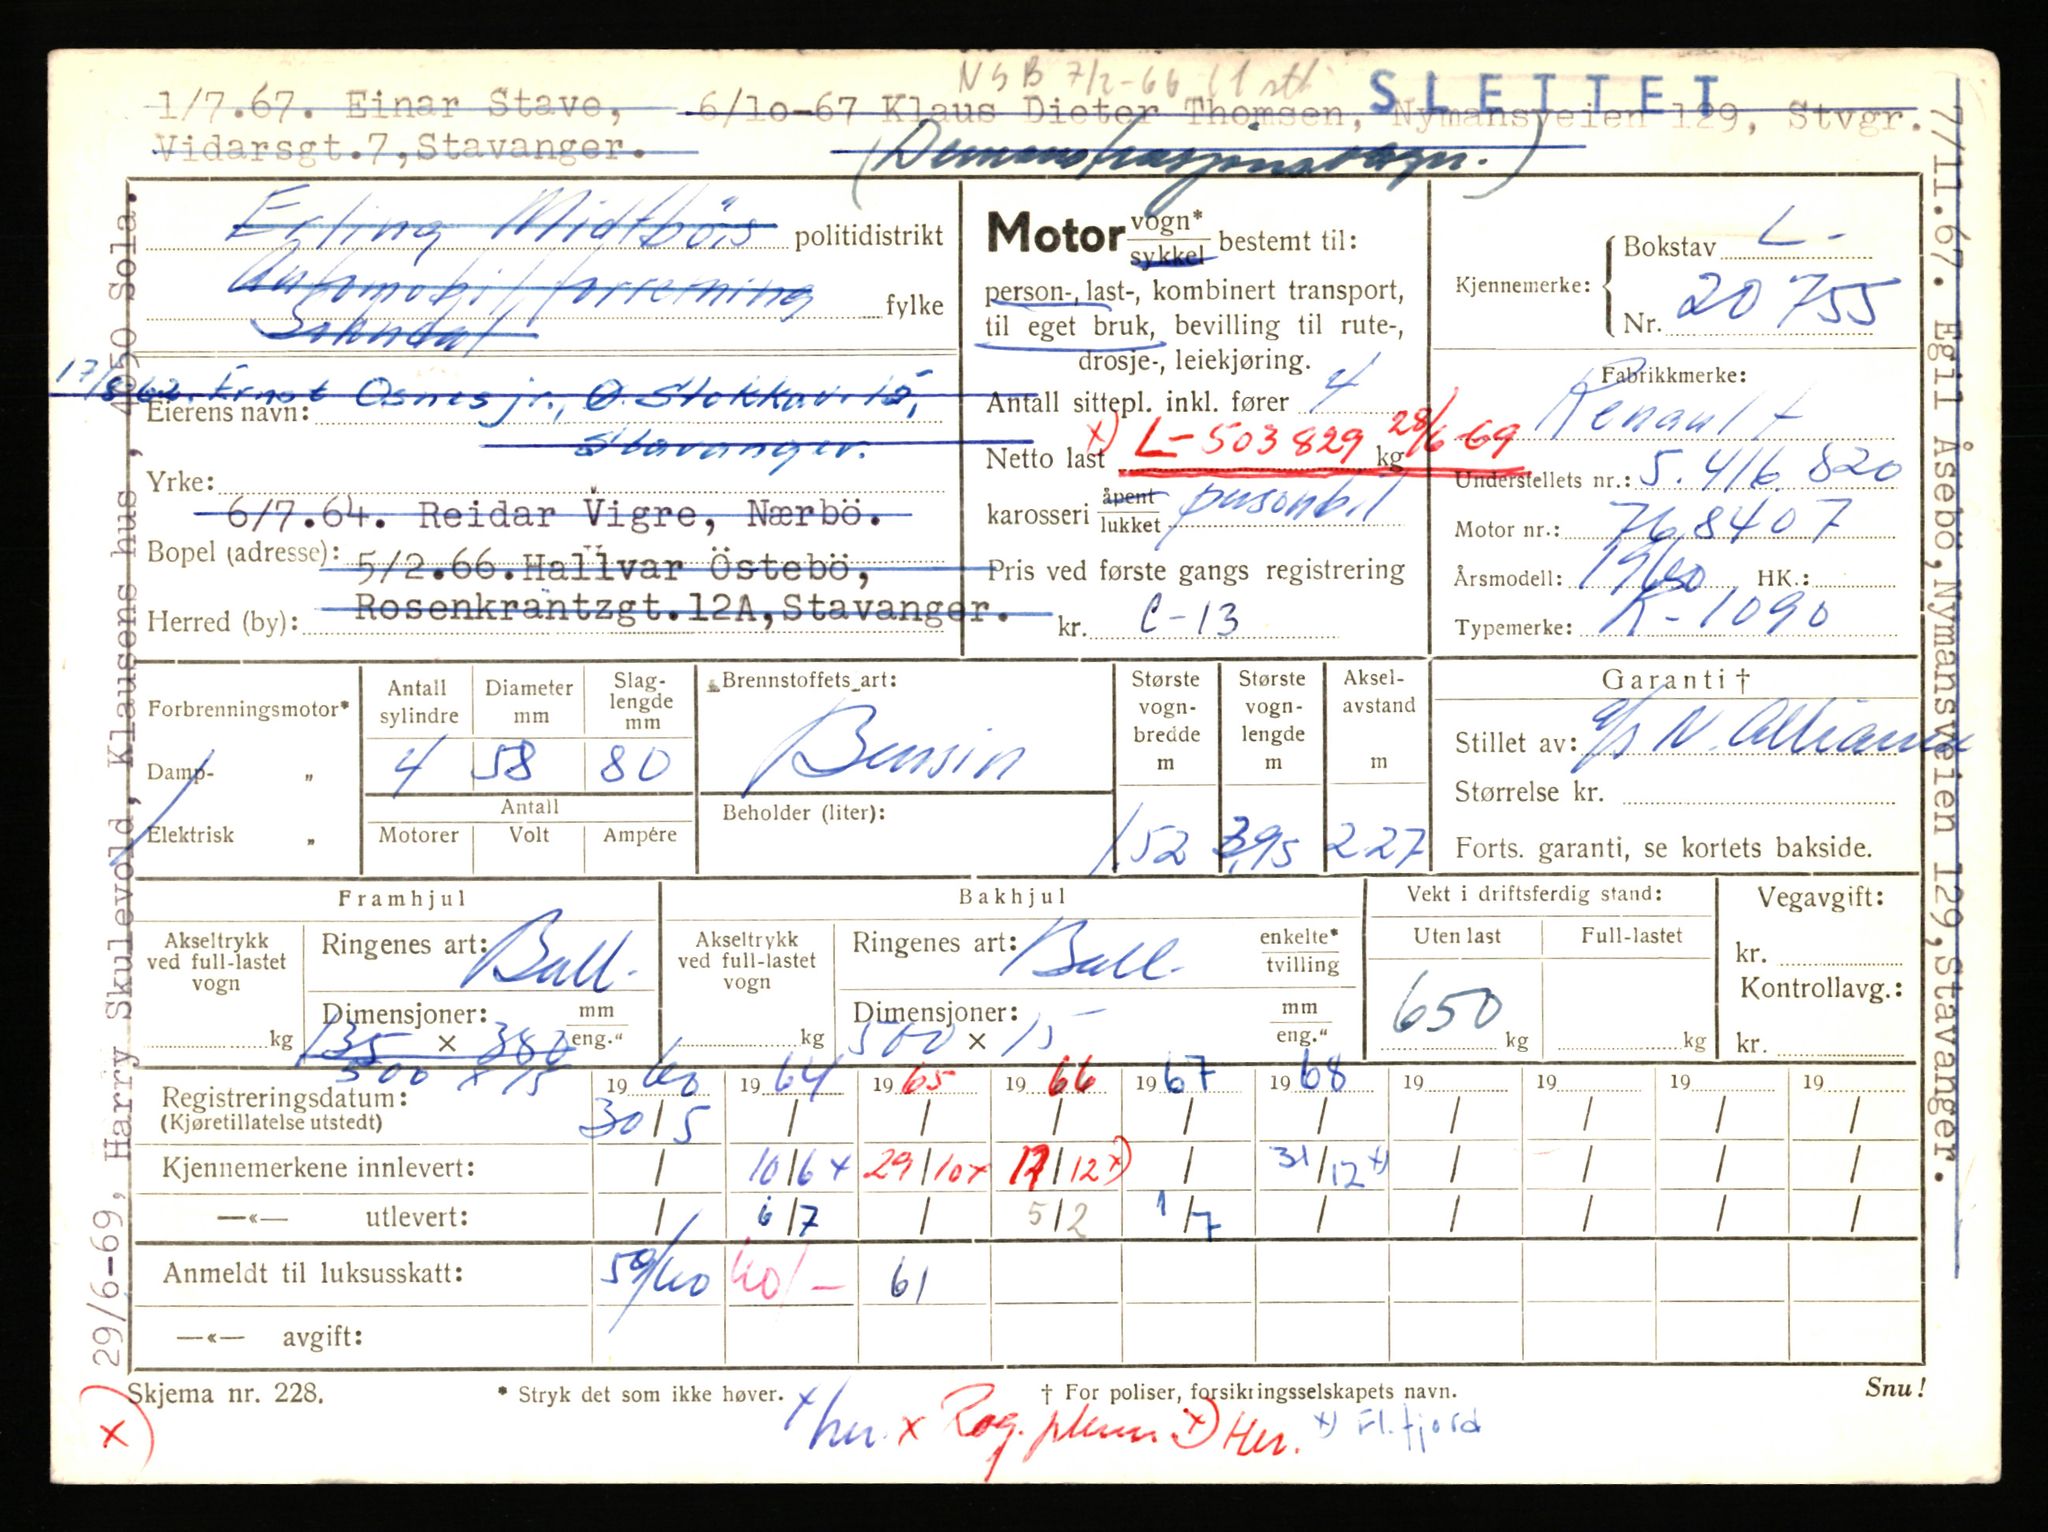 NSB 7/2-66
SLETTET
1/7.67. Einar Stave, 6/10-67 Klaus Dieter Thomsen, Nymansveien 129, Stvgr.
Vidarsgt.7, Stavanger.
(Demonstrasjonsvogn.)
Erling Midtböis politidistrikt
Automobilforretning fylke
Sokndal
17/8-62. Ernst Osnes jr., Ø. Stokkav. 15,
Eierens navn:
Stavanger.
Yrke:
6/7.64. Reidar Vigre, Nærbö.
Bopel (adresse):
5/2.66. Hallvar Östebö,
Herred (by): Rosenkrantzgt.12A, Stavanger.
Motor vogn* sykkel bestemt til:
person-, last-, kombinert transport,
til eget bruk, bevilling til rute-,
drosje-, leiekjøring.
Antall sittepl. inkl. fører 4
x) L-503829 28/6-69
Netto last kg
karosseri åpent lukket personbil
Pris ved første gangs registrering
kr. C-13
Kjennemerke: Bokstav L-
Nr. 20755
Fabrikkmerke:
Renault
Understellets nr.: 5.416.820
Motor nr.: 768407
Årsmodell: 1960 HK.:
Typemerke: R-1090
Forbrenningsmotor*
Damp- "
Elektrisk "
Antall sylindre 4
Diameter mm 58
Slaglengde mm 80
Antall
Motorer Volt Ampére
Brennstoffets art:
Bensin
Beholder (liter):
Største vognbredde m 152
Største vognlengde m 3,95
Akselavstand m 227
Garanti †
Stillet av: a/s N. Alliance
Størrelse kr.
Forts. garanti, se kortets bakside.
Framhjul
Akseltrykk ved full-lastet vogn kg
Ringenes art: Ball.
Dimensjoner: mm eng."
135 x 380
500 x 15
Bakhjul
Akseltrykk ved full-lastet vogn kg
Ringenes art: Ball.
enkelte* tvilling
Dimensjoner: mm eng."
500 x 15
Vekt i driftsferdig stand:
Uten last Full-lastet
650 kg kg
Vegavgift:
kr.
Kontrollavg.:
kr.
1960 1964 1965 1966 1967 1968 19 19 19 19
Registreringsdatum: 30/5 / / / / / / / / /
(Kjøretillatelse utstedt)
Kjennemerkene innlevert: / 10/6 x 29/10 x 17/12 x) / 31/12 x) / / / /
—«— utlevert: / 6/7 / 5/2 1/7 / / / / /
Anmeldt til luksusskatt: 59/60 60/- 61
—«— avgift:
Skjema nr. 228. * Stryk det som ikke høver. † For poliser, forsikringsselskapets navn. Snu!
x her. x Rog. plenn x) Her. x) Fl.fjord
x) 29/6-69, Harry Skulevold, Klausens hus, 4050 Sola.
7/11.67. Egil Åsebö, Nymansveien 129, Stavanger.